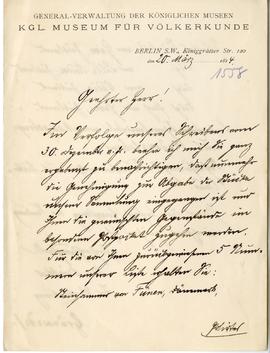 GENERAL-VERWALTUNG DER KÖNIGLICHEN MUSEEN
KGL MUSEUM FÜR VÖLKERKUNDE
BERLIN S.W., Königgrätzer Str. 120
den 20. März 1894
1558
Geehrter Herr!
Im Verfolge unseres Schreibens vom
30. Dezember v. J. beehre ich mich Sie ganz
ergebenst zu benachrichtigen, daß nunmehr
die Genehmigung zur Abgabe der Stücke
unserer Sammlung eingegangen ist und
Ihnen die gewünschten Gegenstände im
besonderen Postpacket zugehen werden.
Für die von Ihnen zurückgewiesenen 5 Num-
mern unserer Liste erhalten Sie:
Steinhammer von Fünen, Dänemark,